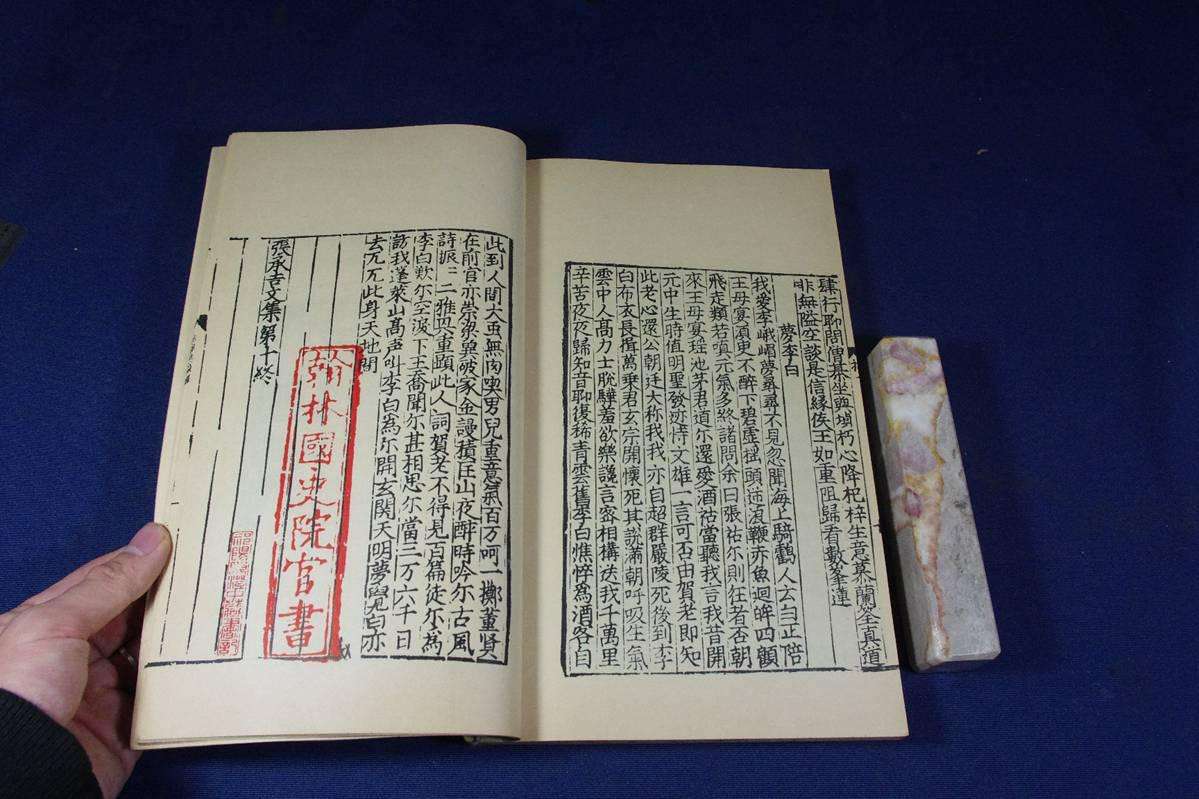 肆行聊問傳碁坐塤朽心降杞梓生意慕蘭荃真
非無隘空談是信緣侯王如重阻歸看數峯蓮
夢李白
我愛李峨嵋夢尋尋不見忽聞海上騎鶴人云白正陪
王母宴須臾不醉下碧虛搖頭逆浪鞭赤魚迴眸四顧
飛走類若嗔元氣多終諸問余曰張祐尔則狂者否朝
來王母宴瑤池茅君道尔還愛酒祐當聽我言我昔開
元中生時值明聖發迹恃文雄一言可否由賀老即知
此老心還公朝廷大称我我亦自超群嚴陵死後到李
白布衣長揖萬乘君玄宗開懷死其說滿朝呼吸生氣
雲中人高力士脫鞾羞欲樂讒言密相構送我千萬里
辛苦夜夜歸知音聊復稀青雲舊李白憔悴為酒客自
此到人間大虫無肉喫男兒重意氣百万呵一擲董賢
在前官亦崇梁兾破家金謾積匡山夜醉時吟尔古風
詩振〻二雅興重顕此人詞賀老不得見百篇徒尔為
李白歎尔空下王喬聞尔甚相思尔當三万六千日
訪我蓬萊山高声叫李白為尔開玄関天明夢覺白亦
去兀兀此身天地間
張承吉文集第十終
翰林國史院官書